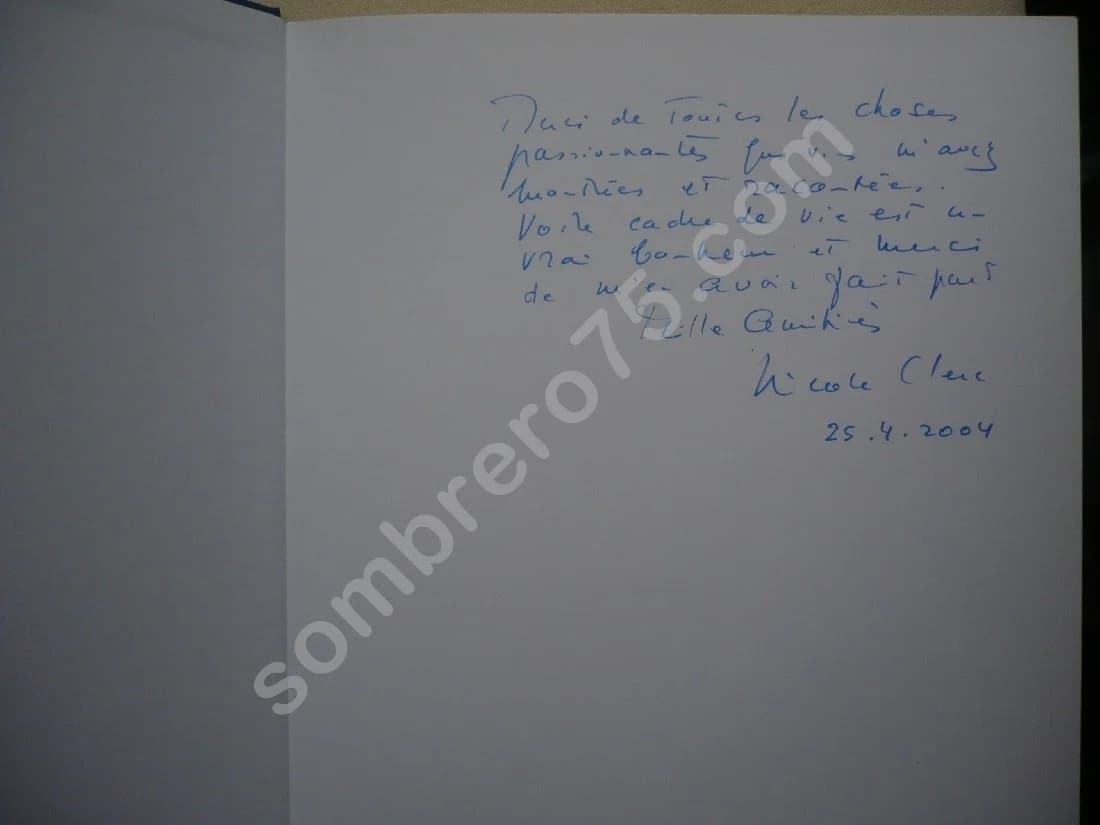 Merci de Toutes les choses
passionnantes que vous m'avez
montrées et racontées.
Votre cadre de vie est un
vrai bonheur et merci
de m'en avoir fait part
Mille Amitiés
Nicole Clerc
25.4.2004
sombrero75.com